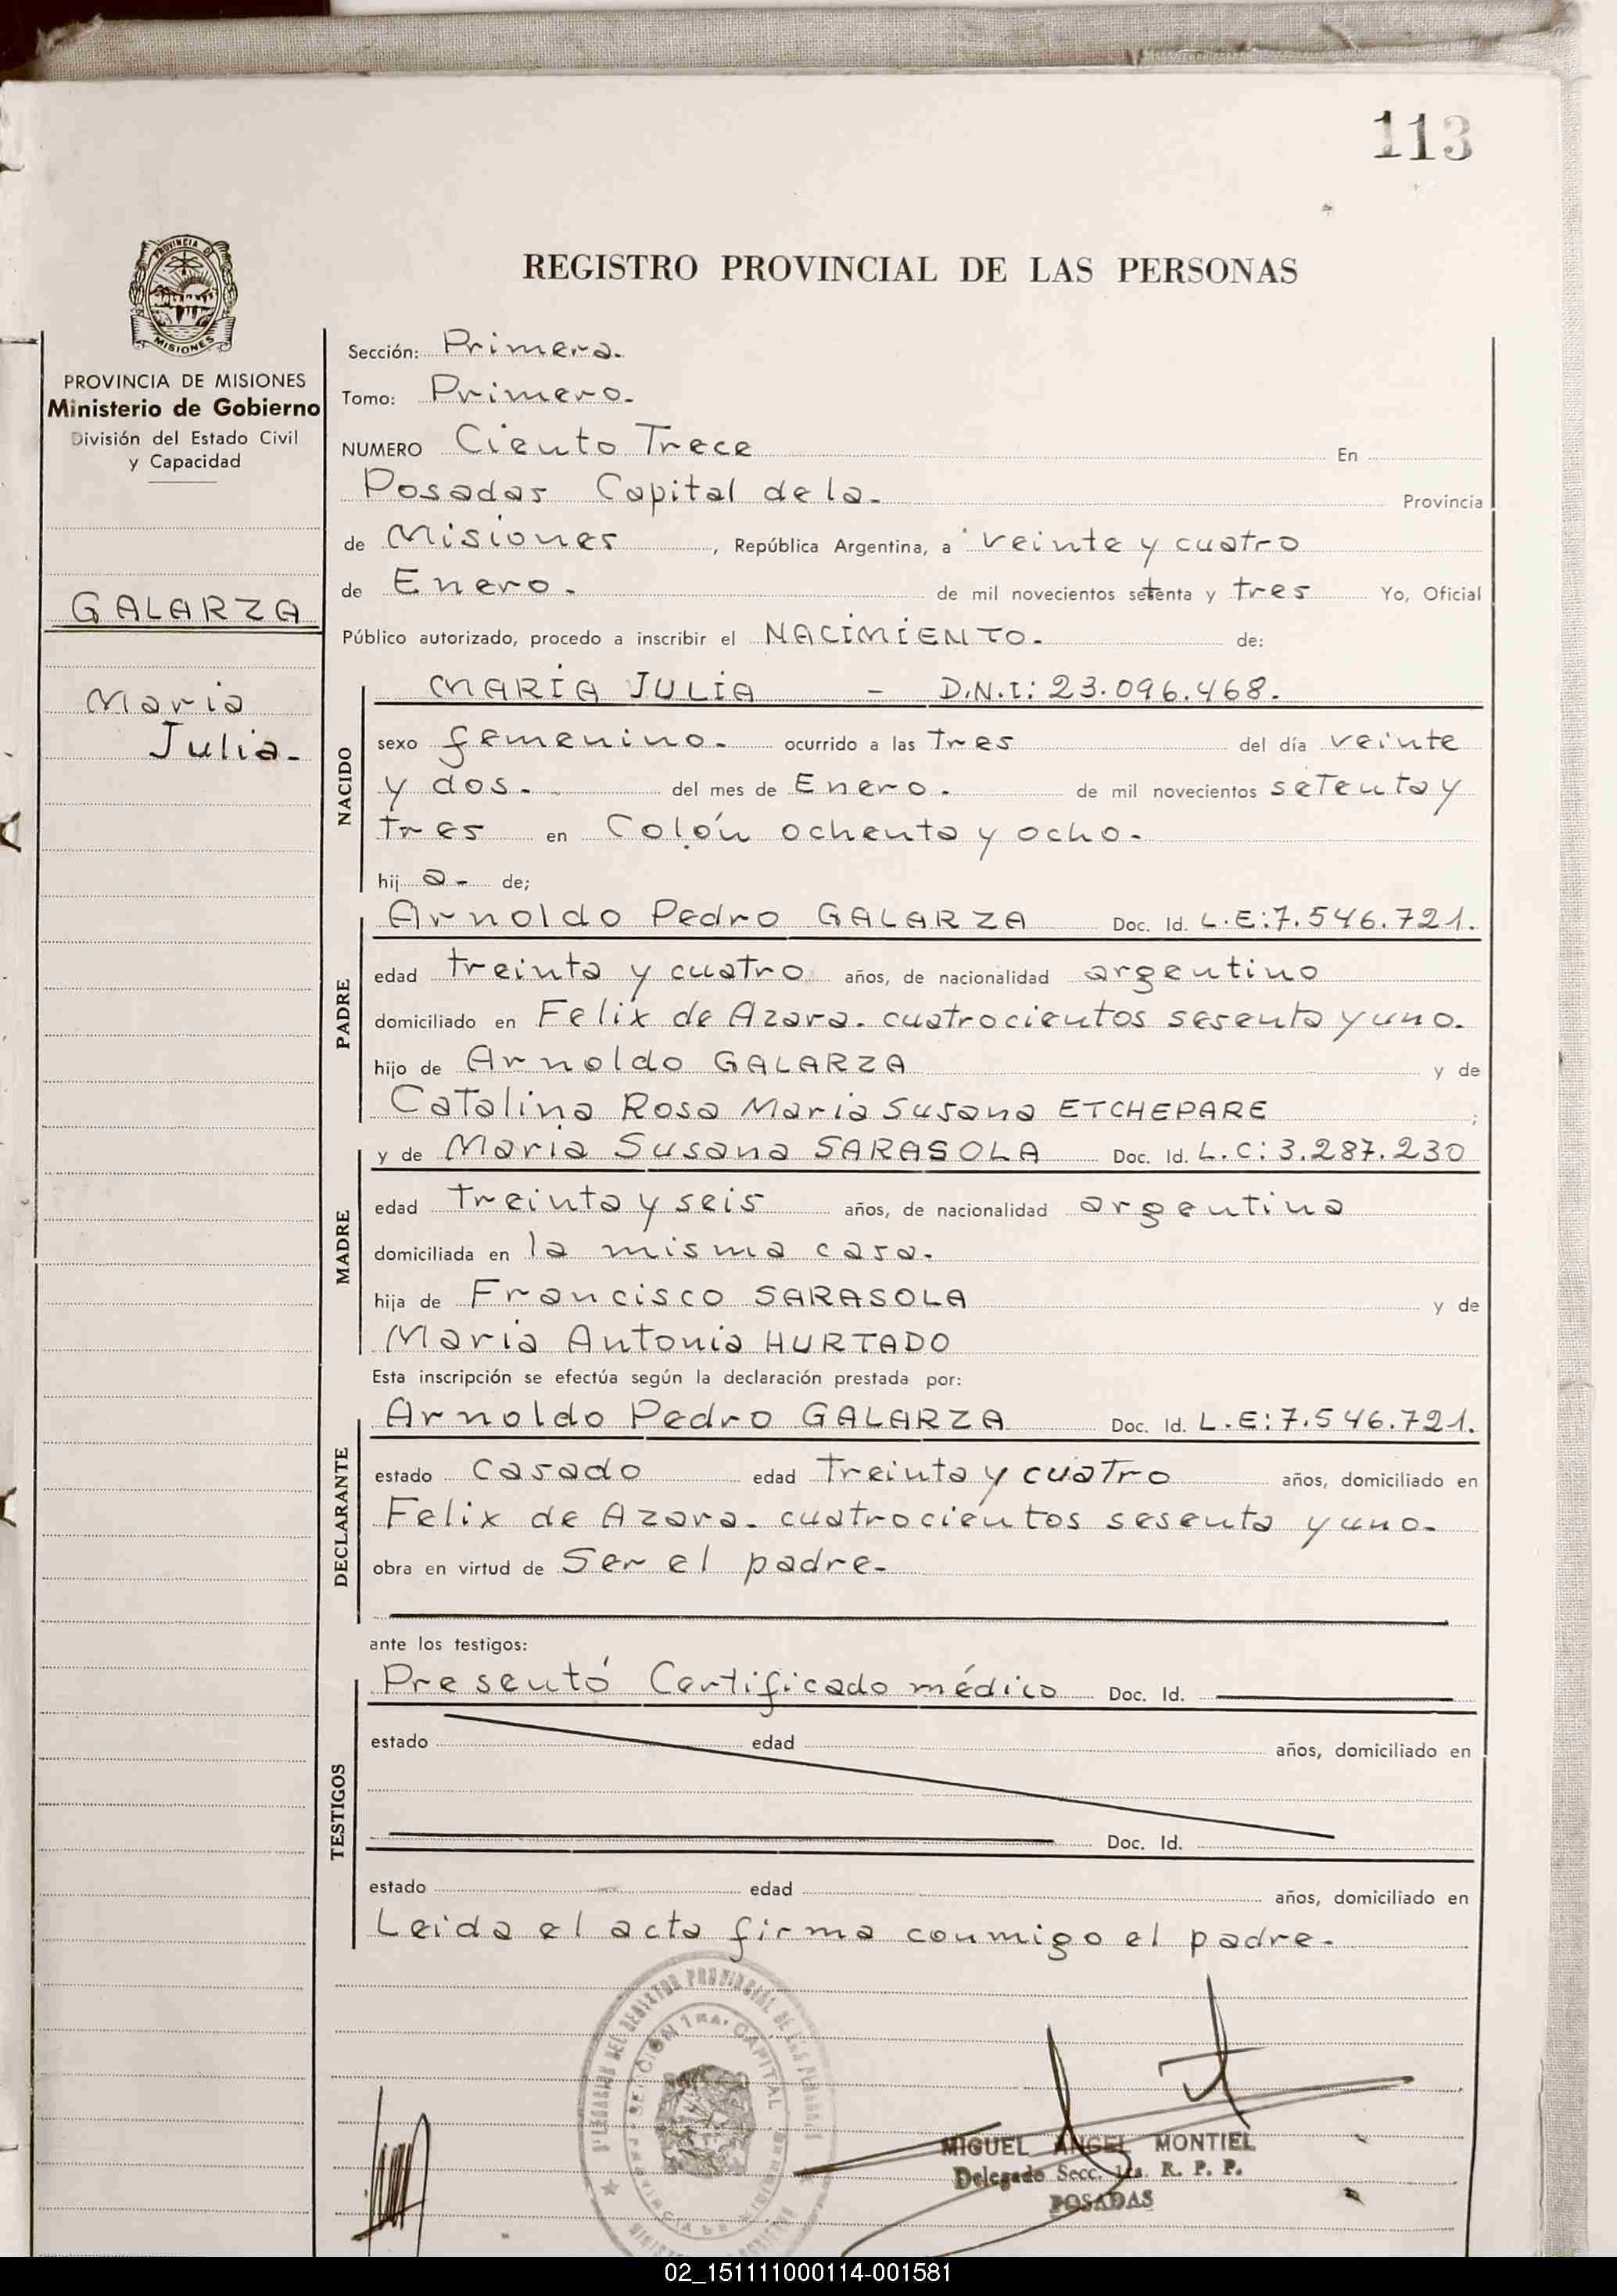 113
PROVINCIA DE
MISIONES
REGISTRO PROVINCIAL DE LAS PERSONAS
PROVINCIA DE MISIONES
Ministerio de Gobierno
División del Estado Civil
y Capacidad
GALARZA
Maria
Julia.
Sección: Primera.
Tomo: Primero.
NUMERO Ciento Trece En
Posadas Capital de la. Provincia
de Misiones, República Argentina, a veinte y cuatro
de Enero. de mil novecientos setenta y tres Yo, Oficial
Público autorizado, procedo a inscribir el NACIMIENTO. de:
NACIDO
MARÍA JULIA - D.N.I: 23.096.468.
sexo femenino. ocurrido a las Tres del día veinte
y dos. del mes de Enero. de mil novecientos seTenta y
tres en Colón ochenta y ocho.
hij a- de;
PADRE
Arnoldo Pedro GALARZA Doc. Id. L.E: 7.546.721.
edad treinta y cuatro años, de nacionalidad argentino
domiciliado en Felix de Azara. cuatrocientos sesenta y uno.
hijo de Arnoldo GALARZA y de
Catalina Rosa Maria Susana ETCHEPARE ;
MADRE
y de Maria Susana SARASOLA Doc. Id. L.C: 3.287.230
edad Treinta y seis años, de nacionalidad argentina
domiciliada en la misma casa.
hija de Francisco SARASOLA y de
Maria Antonia HURTADO
Esta inscripción se efectúa según la declaración prestada por:
DECLARANTE
Arnoldo Pedro GALARZA Doc. Id. L.E: 7.546.721.
estado casado edad Treinta y cuatro años, domiciliado en
Felix de Azara. cuatrocientos sesenta y uno.
obra en virtud de Ser el padre.
ante los testigos:
TESTIGOS
Presentó Certificado médico Doc. Id.
estado edad años, domiciliado en
Doc. Id.
estado edad años, domiciliado en
Leida el acta firma conmigo el padre.
DEL REGISTRO PROVINCIAL DE LAS PERSONAS
SECCION 1RA. CAPITAL
MIGUEL ANGEL MONTIEL
Delegado Secc. 1ra. R. P. P.
POSADAS
02_151111000114-001581